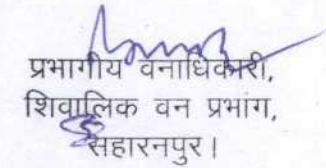 प्रभागीय वनाधिकारी,
शिवालिक वन प्रभाग,
सहारनपुर।